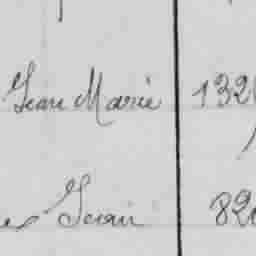 Jean Marie 132
Jean 82